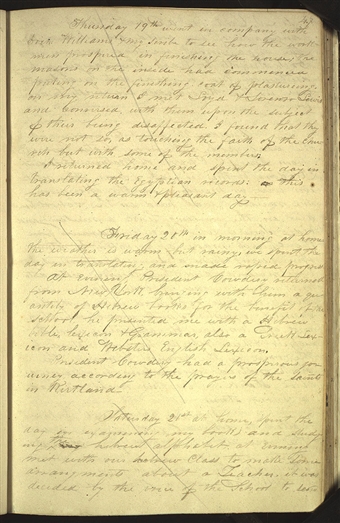 Thursday 19th went in company with
Doct. Williams & my scribe to see how the work
men prospered in finishing the house; the
masons on the inside had commenced
putting on the finishing coat of plastureing.
on my return I met Loyd & Lorenzo Lewis
and conversed with them upon the subject
of their being disaffected. I found that they
were not so, as touching the faith of the Chu
rch but with some of the members.
I returned home and spent the day in
translating the Egyptian records: this
has been a warm & pleasant day
Friday 20th in morning at home
the weather is warm but rainy, we spent the
day in translating, and made rapid progress
At Evening, President Cowdery returned
from New York, bringing with him a qu
antity of Hebrew books for the benefit of the
school, he presented me with a Hebrew
bible, lexicon & Grammar, also a Greek Lex
icon and Websters English Lexicon.
President Cowdery had a prosperous jou
rney according to the prayers of the saints
in Kirtland
Saturday 21st at home, spent the
day in examining my books and study
ing the hebrew alphabet, at evening
met with our hebrew Class to make some
arrangments about a Teacher, it was
decided by the voice of the School to send